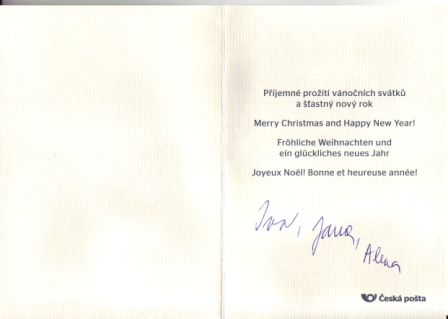 Příjemné prožití vánočních svátků
a šťastný nový rok
Merry Christmas and Happy New Year!
Fröhliche Weihnachten und
ein glückliches neues Jahr
Joyeux Noël! Bonne et heureuse année!
Jana,
Alena
Česká pošta